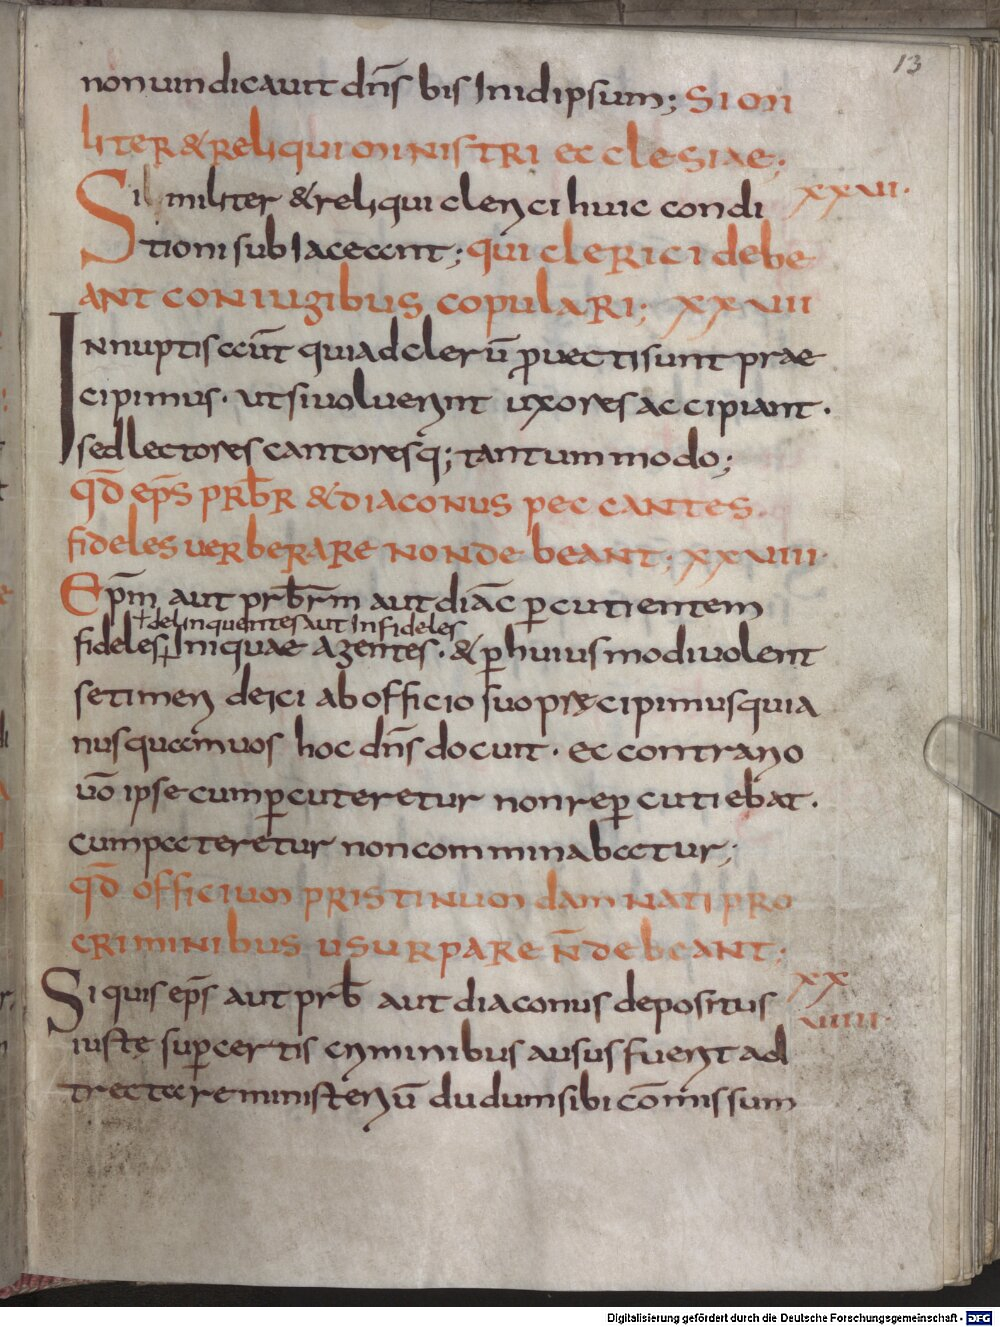 13
non uindicauit dn̄s bis In id ipsum; Simi
liter & reliqui ministri ecclesiae;
Similiter & reliqui clerici huic condi xxvii.
tioni subIaceant; qui clerici debe
ant coniugibus copulari; xxviii
Innuptis aūt qui ad clerū prouecti sunt prae
cipimus. ut si uoluerint uxores accipiant.
sed lectores cantoresq; tantummodo;
qđ ep̄s prb̄r & diaconus peccantes.
fideles uerberare non debeant; xxviiii.
Ep̄m aut prb̄rm aut diāc ꝑcutientem
+ delinquentes aut Infideles
fideles Inique agentes. & ꝑ huiusmodi uolent
se timeri deici ab officio suo pręcipimus quia
nusquam uos hoc dn̄s docuit. ec contrario
uō ipse cum ꝑcuteretur non reꝑcutiebat.
cum pateretur non comminabatur;
qđ officium pristinum damnati pro
criminibus usurpare n̄ debeant;
Si quis ep̄s aut prb̄ aut diaconus depositus xx
uiiii.
iuste suꝑ certis criminibus ausus fuerit ad
trectare ministeriū dudum sibi cōmissum
Digitalisierung gefördert durch die Deutsche Forschungsgemeinschaft - DFG